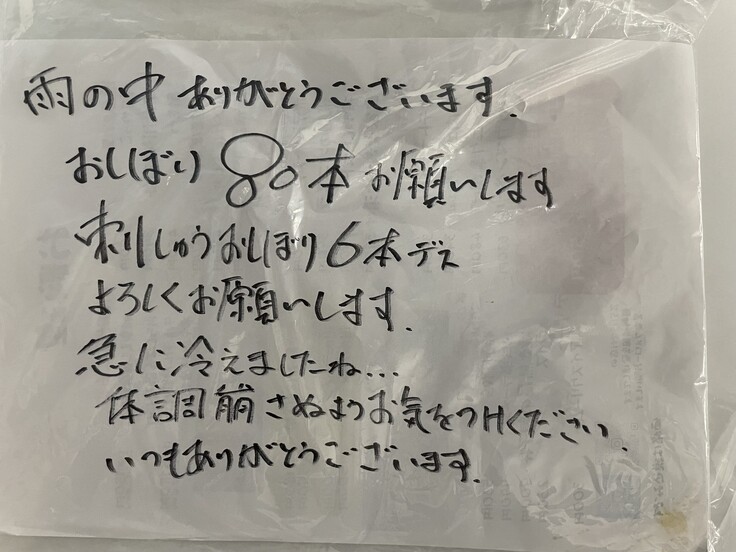 雨の中ありがとうございます.
おしぼり80本お願いします
刺しゅうおしぼり6本デス
よろしくお願いします.
急に冷えましたね...
体調崩さぬようお気をつけください.
いつもありがとうございます.